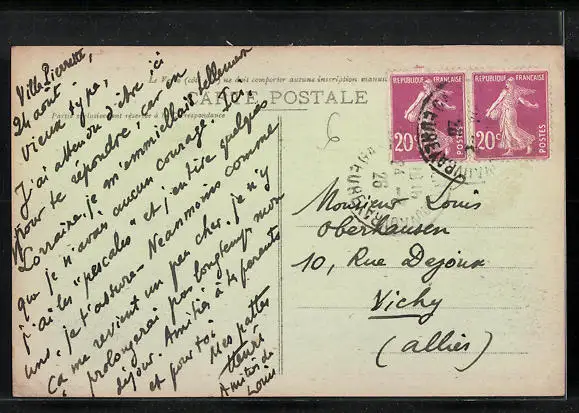 Villa Pierrette,
24 août
Vieux type,
J'ai attendu d'être ici
pour te répondre, car en
Lorraine je m'emmiellait tellement
que je n'avais aucun courage. Ici,
j'ai les "pescales" et j'en tire quelques
uns, je t'assure. Néanmoins comme
ça me revient un peu cher, je n'y
prolongerai pas longtemps mon
séjour. Amitiés à tes parents
et pour toi
Mes pattes
Henri
Amitiés de
Louis
CARTE POSTALE
REPUBLIQUE FRANÇAISE
20c
POSTES
REPUBLIQUE FRANÇAISE
20c
POSTES
Monsieur Louis
Oberhausen
10, Rue Dejoux
Vichy
(allier)